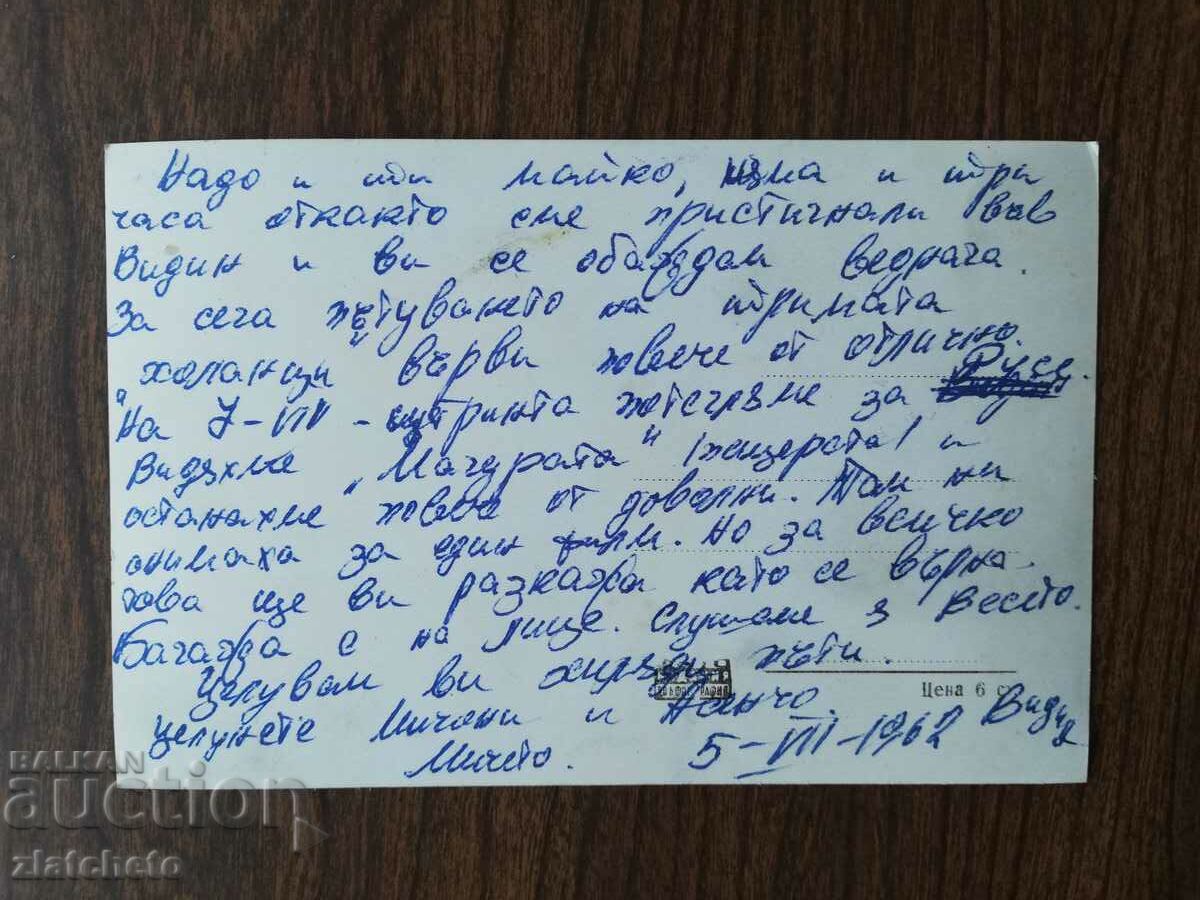 Надо и ти майко, няма и три
часа откакто сме пристигнали във
Видин и ви се обаждам веднага.
За сега пътуването на тримата
"холанци" върви повече от отлично.
На 7-VIII-сутринта потегляме за Русе.
Видяхме "Магурата" /пещерата/ и
останахме повече от доволни. Там ни
снимаха за един филм. Но за всичко
това ще ви разкажа като се върна.
Багажа е на лице. Слушаме
Целувам ви хиляди пъти.
Цена 6 ст
целунете и Нанчо.
Мичето. 5-VIII-1962 Видин
BALKAN
auction
zlatcheto